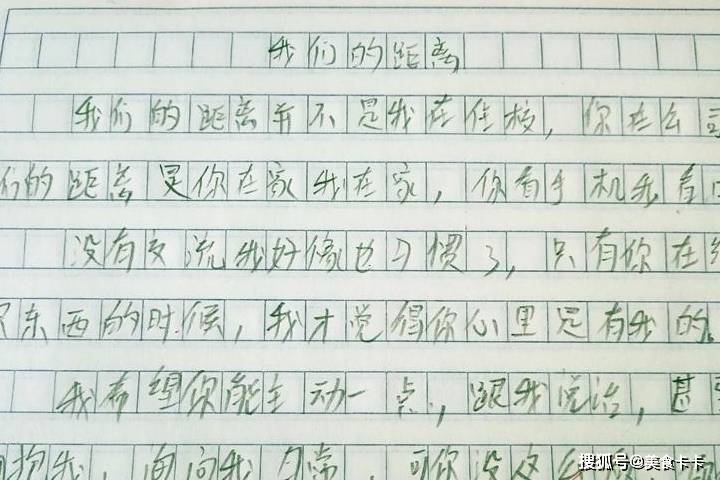 我们的距离
我们的距离并不是我在住校，你在公司
们的距离是你在家我在家，你看手机我看
没有交流我好像也习惯了，只有你在给
东西的时候，我才觉得你心里是有我的。
我希望你能主动一点，跟我说话，甚至
抱我，问问我日常，可你没这
搜狐号@美食卡卡